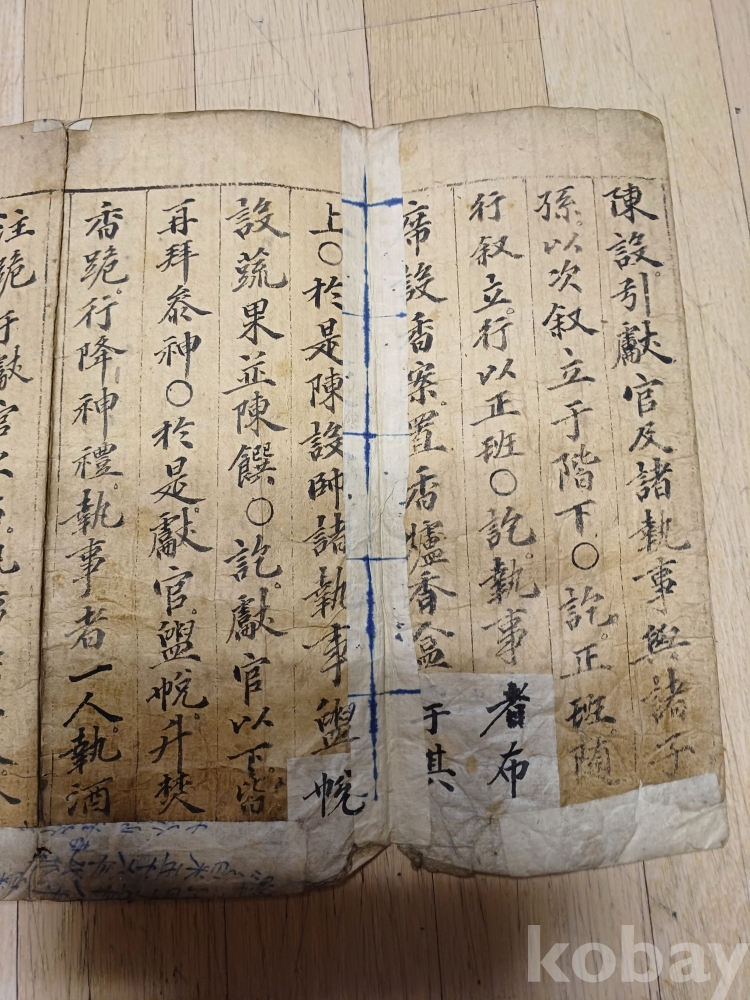 陳設。引獻官及諸執事與諸子
孫。以次叙立于階下○訖。正班。随
行叙立。行以正班○訖。執事者布
席設香案。置香爐香盒于其
上○於是陳設帥諸執事盥帨
設蔬果並陳饌○訖。獻官以下皆
再拜叅神○於是。獻官。盥帨。升焚
香跪。行降神禮。執事者一人執酒
注跪
kobay